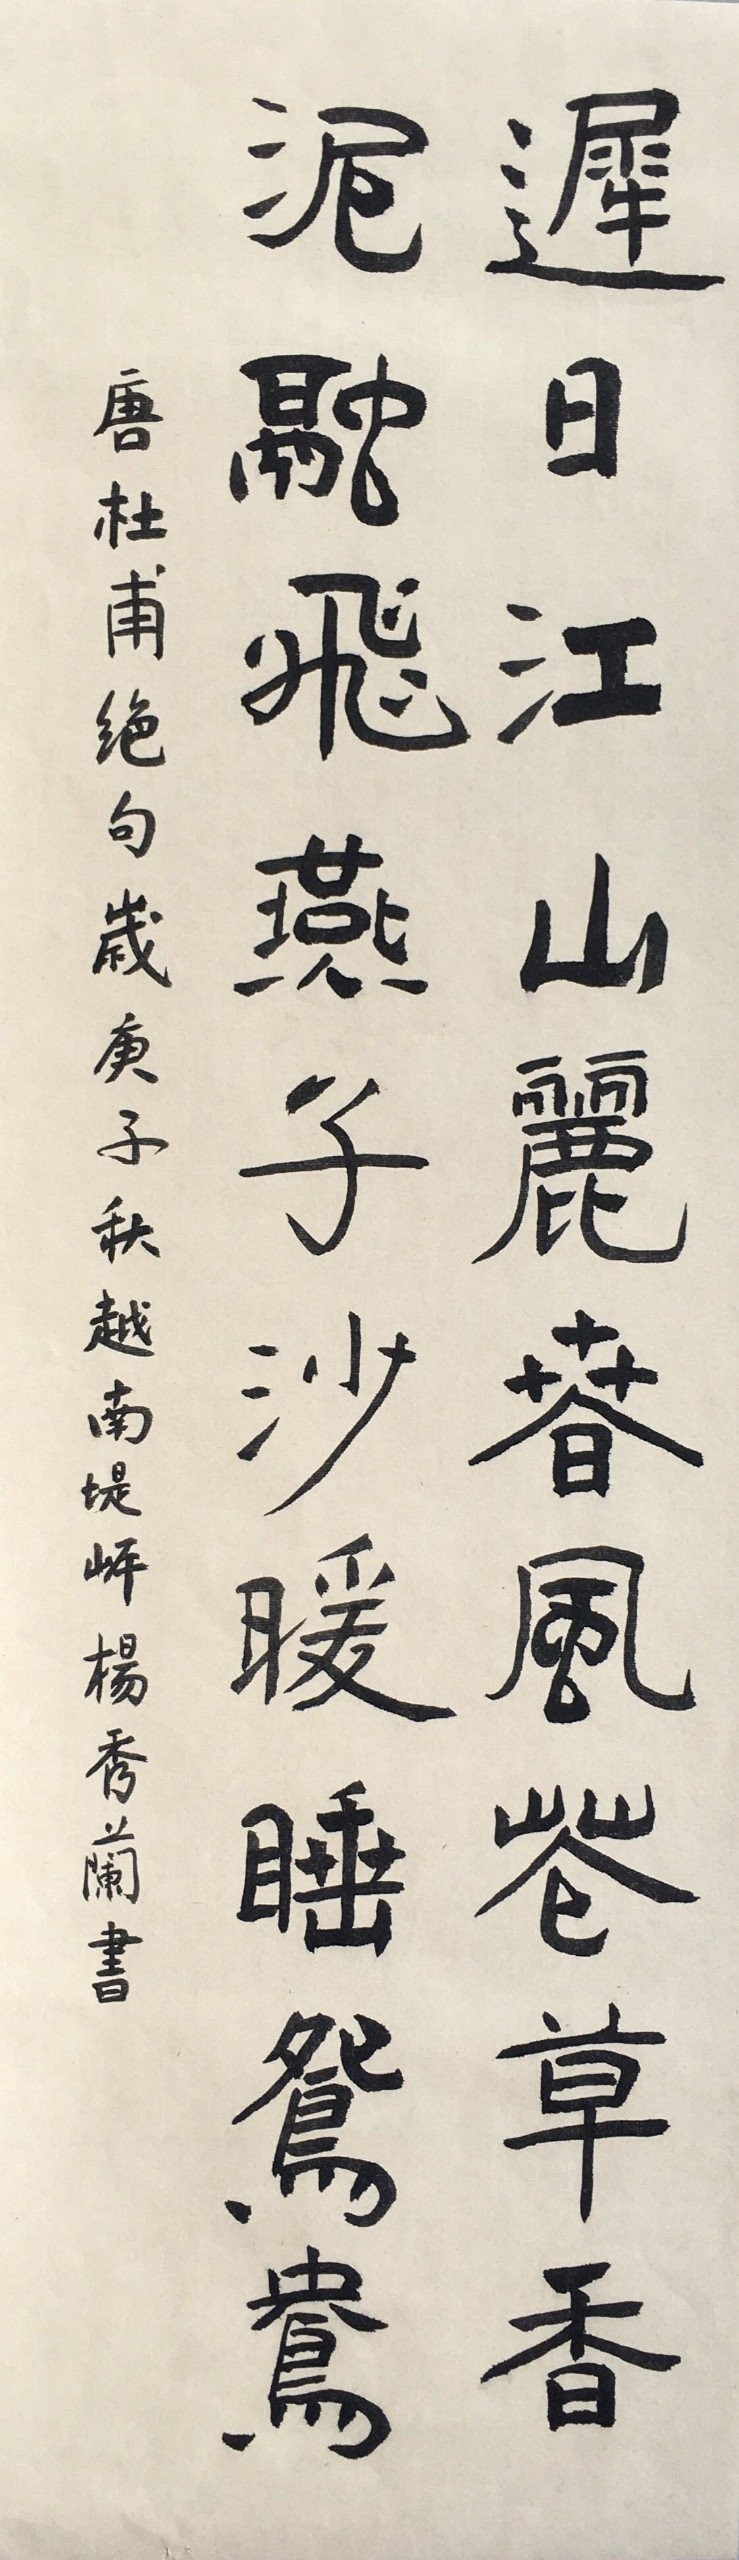 遲日江山麗春風花草香
泥融飛燕子沙暖睡鴛鴦
唐杜甫絶句歲庚子秋越南堤岸楊秀蘭書